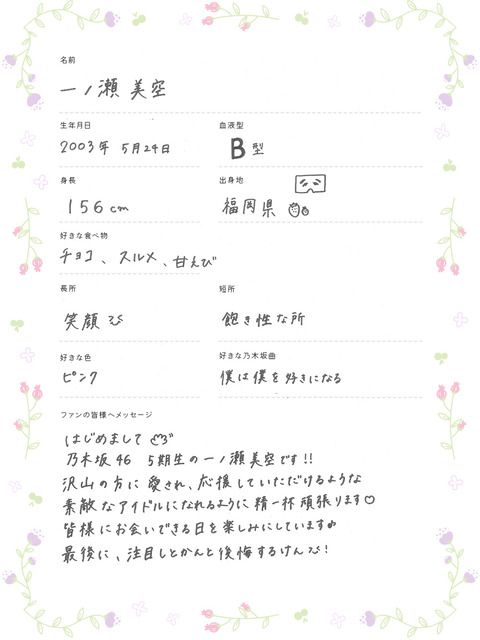 名前
一ノ瀬 美空
生年月日
血液型
2003年 5月24日
B型
身長
出身地
156cm
福岡県
好きな食べ物
チョコ、スルメ、甘えび
長所
短所
笑顔
飽き性な所
好きな色
好きな乃木坂曲
ピンク
僕は僕を好きになる
ファンの皆様へメッセージ
はじめまして
乃木坂46 5期生の一ノ瀬美空です!!
沢山の方に愛され、応援していただけるような
素敵なアイドルになれるように精一杯頑張ります♡
皆様にお会いできる日を楽しみにしています
最後に、注目しとかんと後悔するけん!